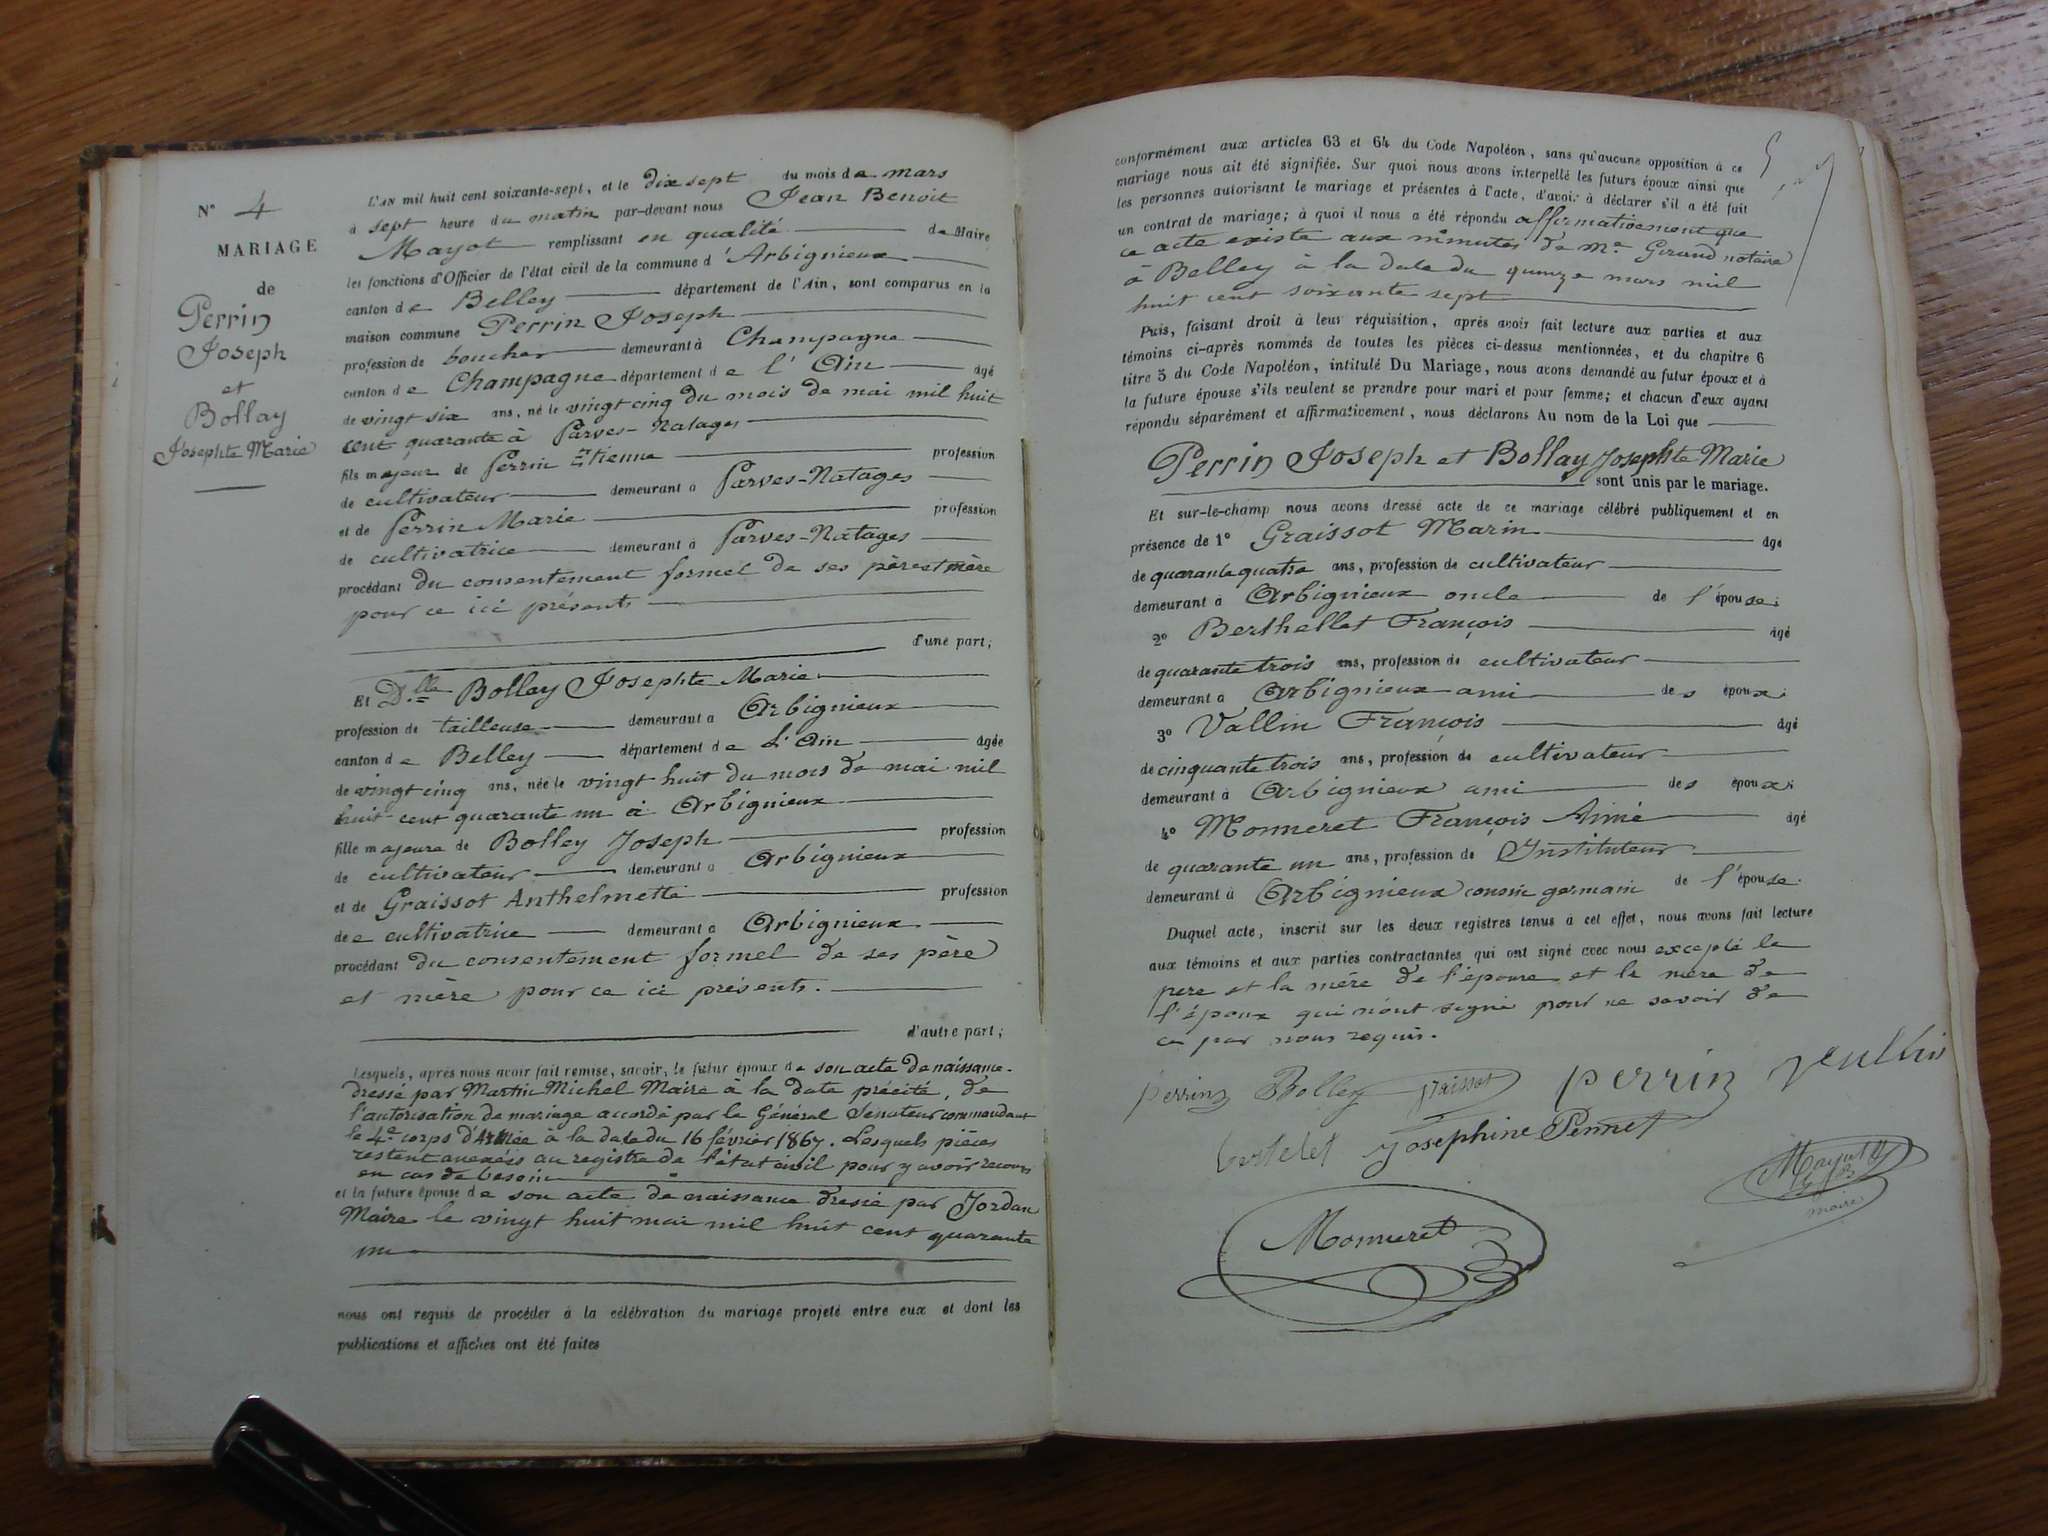 N° 4
MARIAGE
de
Perrin
Joseph
et
Bollay
Josephte Marie
L'AN mil huit cent soixante-sept, et le dix sept du mois de mars
à sept heure du matin par-devant nous Jean Benoit
Mayot remplissant en qualité de Maire
les fonctions d'Officier de l'état civil de la commune d'Arbignieux
canton de Belley département de l'Ain, sont comparus en la
maison commune Perrin Joseph
profession de boucher demeurant à Champagne
canton de Champagne département de l'Ain âgé
de vingt six ans, né le vingt cinq du mois de mai mil huit
cent quarante à Parves-Natages
fils majeur de Perrin Etienne profession
de cultivateur demeurant à Parves-Natages
et de Perrin Marie profession
de cultivatrice demeurant à Parves-Natages
procédant du consentement formel de ses père et mère
pour ce ici présents
d'une part;
Et D.lle Bollay Josephte Marie
profession de tailleuse demeurant à Arbignieux
canton de Belley département de L'Ain âgée
de vingt cinq ans, née le vingt huit du mois de mai mil
huit cent quarante un à Arbignieux
fille majeure de Bolley Joseph profession
de cultivateur demeurant à Arbignieux
et de Graissot Anthelmette profession
de cultivatrice demeurant à Arbignieux
procédant du consentement formel de ses père
et mère pour ce ici présents.
d'autre part;
Lesquels, après nous avoir fait remise, savoir, le futur époux de son acte de naissance
dressé par Martin Michel Maire à la date précité, de
l'autorisation de mariage accordé par le Général Senateur commandant
le 4e corps d'Armée à la date du 16 février 1867. Lesquels pièces
restent anexéés au registre de l'état civil pour y avoir recours
en cas de besoin
et la future épouse de son acte de naissance dressé par Jordan
Maire le vingt huit mai mil huit cent quarante
un
nous ont requis de procéder à la célébration du mariage projeté entre eux et dont les
publications et affiches ont été faites
conformément aux articles 63 et 64 du Code Napoléon, sans qu'aucune opposition à ce
mariage nous ait été signifiée. Sur quoi nous avons interpellé les futurs époux ainsi que
les personnes autorisant le mariage et présentes à l'acte, d'avoir à déclarer s'il a été fait
un contrat de mariage; à quoi il nous a été répondu affirmativement que
ce acte existe aux minutes de Me Girand notaire
à Belley à la date du quinze mars mil
huit cent soixante sept
Puis, faisant droit à leur réquisition, après avoir fait lecture aux parties et aux
témoins ci-après nommés de toutes les pièces ci-dessus mentionnées, et du chapitre 6
titre 5 du Code Napoléon, intitulé Du Mariage, nous avons demandé au futur époux et à
la future épouse s'ils veulent se prendre pour mari et pour femme; et chacun d'eux ayant
répondu séparément et affirmativement, nous déclarons Au nom de la Loi que
Perrin Joseph et Bollay Josephte Marie
sont unis par le mariage.
Et sur-le-champ nous avons dressé acte de ce mariage célébré publiquement et en
présence de 1° Graissot Marin âgé
de quarante quatre ans, profession de cultivateur
demeurant à Arbignieux oncle de l'épouse;
2° Berthellet François âgé
de quarante trois ans, profession de cultivateur
demeurant à Arbignieux ami des époux;
3° Vallin François âgé
de cinquante trois ans, profession de cultivateur
demeurant à Arbignieux ami des époux;
4° Monneret François Aimé âgé
de quarante un ans, profession de Instituteur
demeurant à Arbignieux cousin germain de l'épouse.
Duquel acte, inscrit sur les deux registres tenus à cet effet, nous avons fait lecture
aux témoins et aux parties contractantes qui ont signé avec nous excepté le
pere et la mère de l'épouse et la mère de
l'époux qui n'ont signé pour ne savoir de
ce par nous requis.
Perrin Bolley Graissot Perrin Vullin
bertelet Josephine Pennet
Mayot
maire
Monneret